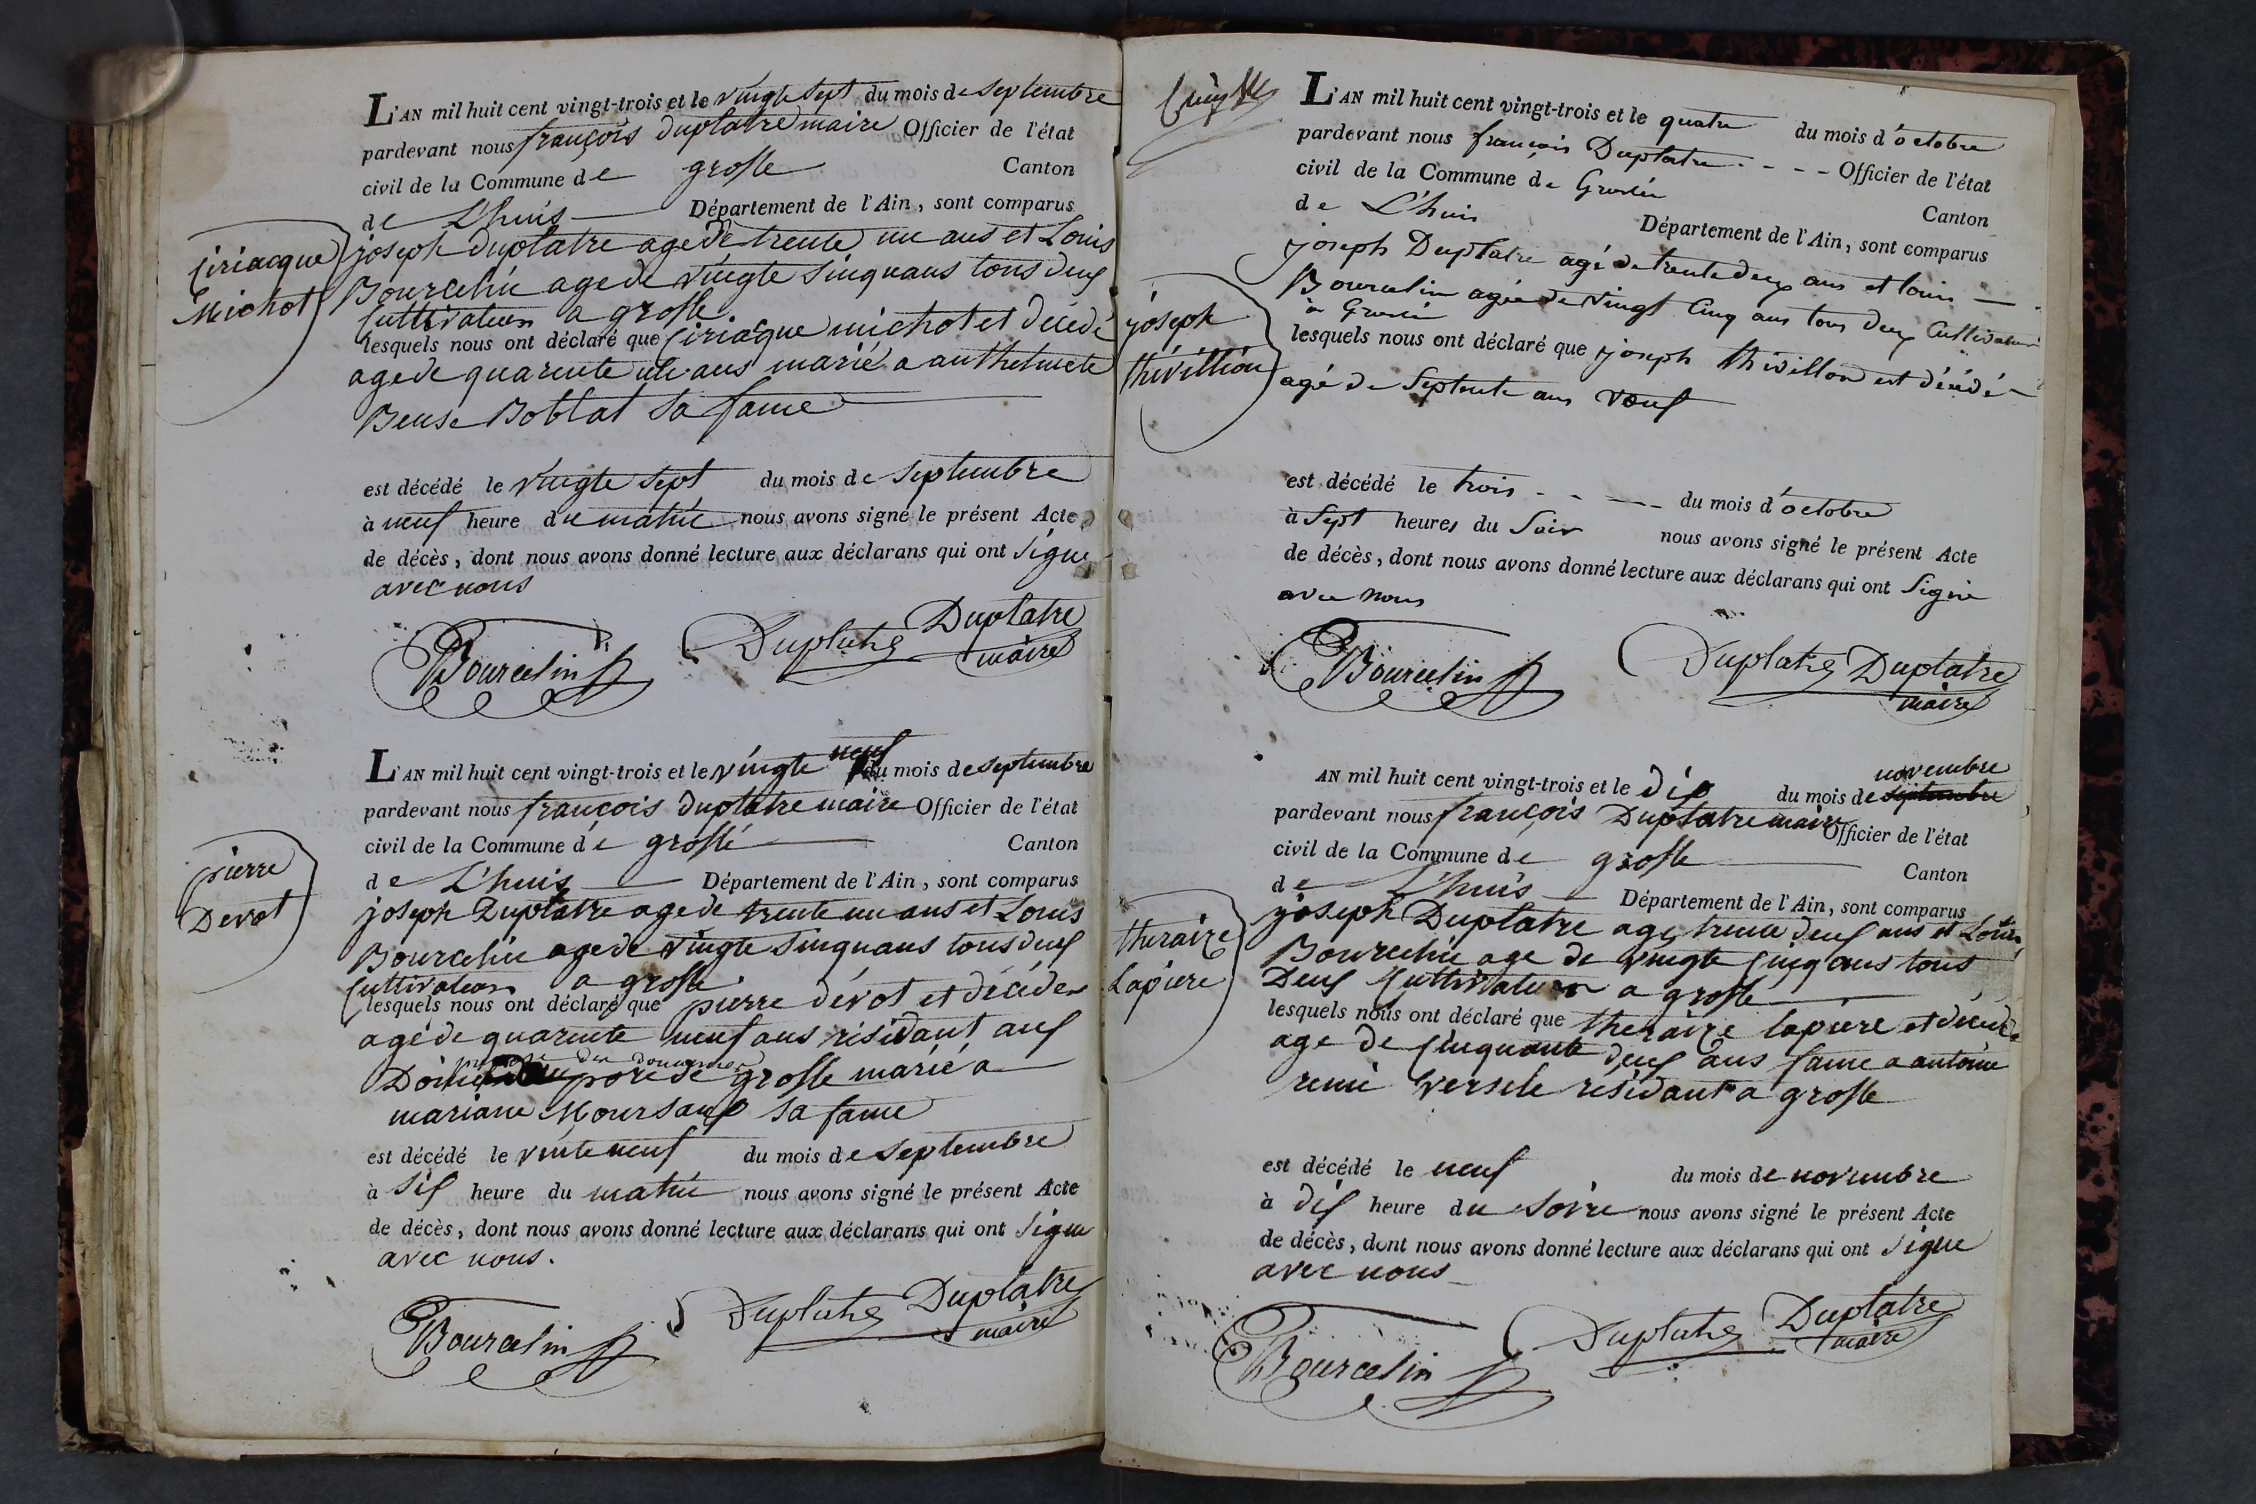 L'AN mil huit cent vingt-trois et le vingte sept du mois de septembre
pardevant nous françois duplatre maire Officier de l'état
civil de la Commune de grosle Canton
de L'huis Département de l'Ain, sont comparus
joseph duplatre age de trente un ans et Louis
Bourcelin age de vingte sinquans tous deus
Cultivateurs a grosle
Ciriacque
Michot
lesquels nous ont déclaré que Ciriacque michot et décédé
age de quarente un ans marié a anthelmete
Boblat sa fame
est décédé le vingte sept du mois de septembre
à neuf heure du matin nous avons signé le présent Acte
de décès, dont nous avons donné lecture aux déclarans qui ont signe
avec nous
Bourcelin Duplatre Duplatre
maire
L'AN mil huit cent vingt-trois et le vingte neuf du mois de septembre
pardevant nous françois duplatre maire Officier de l'état
civil de la Commune dé grosle Canton
de L'huis Département de l'Ain, sont comparus
pierre
Devot
joseph Duplatre age de trente un ans et Louis
Bourcelin age de vingte sinquans tous deus
Cultivateurs a grosle
lesquels nous ont déclaré que pierre dévot et décéde
agé de quarente neuf ans résidant aus
grosle marié a
mariane Moursaud sa fame
est décédé le vinte neuf du mois de septembre
à sis heure du matin nous avons signé le présent Acte
de décès, dont nous avons donné lecture aux déclarans qui ont signe
avec nous.
Bourcelin Duplatre Duplatre
maire
L'AN mil huit cent vingt-trois et le quatre du mois d'octobre
pardevant nous françois Duplatre Officier de l'état
civil de la Commune de Groslée Canton
de L'huis Département de l'Ain, sont comparus
joseph Duplatre agé de trente deux ans et louis
Bourcelin agée de vingt cinq ans tous deux Cultivateurs
à Groslée
joseph
thévillion
lesquels nous ont déclaré que joseph thivillon est décédé
agé de septente ans veuf
est décédé le trois du mois d'octobre
à sept heures du Soir nous avons signé le présent Acte
de décès, dont nous avons donné lecture aux déclarans qui ont Signé
avec nous
Bourcelin Duplatre Duplatre
maire
AN mil huit cent vingt-trois et le dix du mois de septembre novembre
pardevant nous françois Duplatre maire Officier de l'état
civil de la Commune dé grosle Canton
de L'huis Département de l'Ain, sont comparus
theraize
Lapiere
joseph Duplatre age trente deus ans et Louis
Bourcelin age de vingte cinq ans tous
Deus Cultivateurs a grosle
lesquels nous ont déclaré que theraize lapiere et décéde
age de Cinquante deus ans fame a antoine
remi résidant a grosle
est décédé le neuf du mois de novembre
à dis heure du soire nous avons signé le présent Acte
de décès, dont nous avons donné lecture aux déclarans qui ont signe
avec nous
Bourcelin Duplatre Duplatre
maire